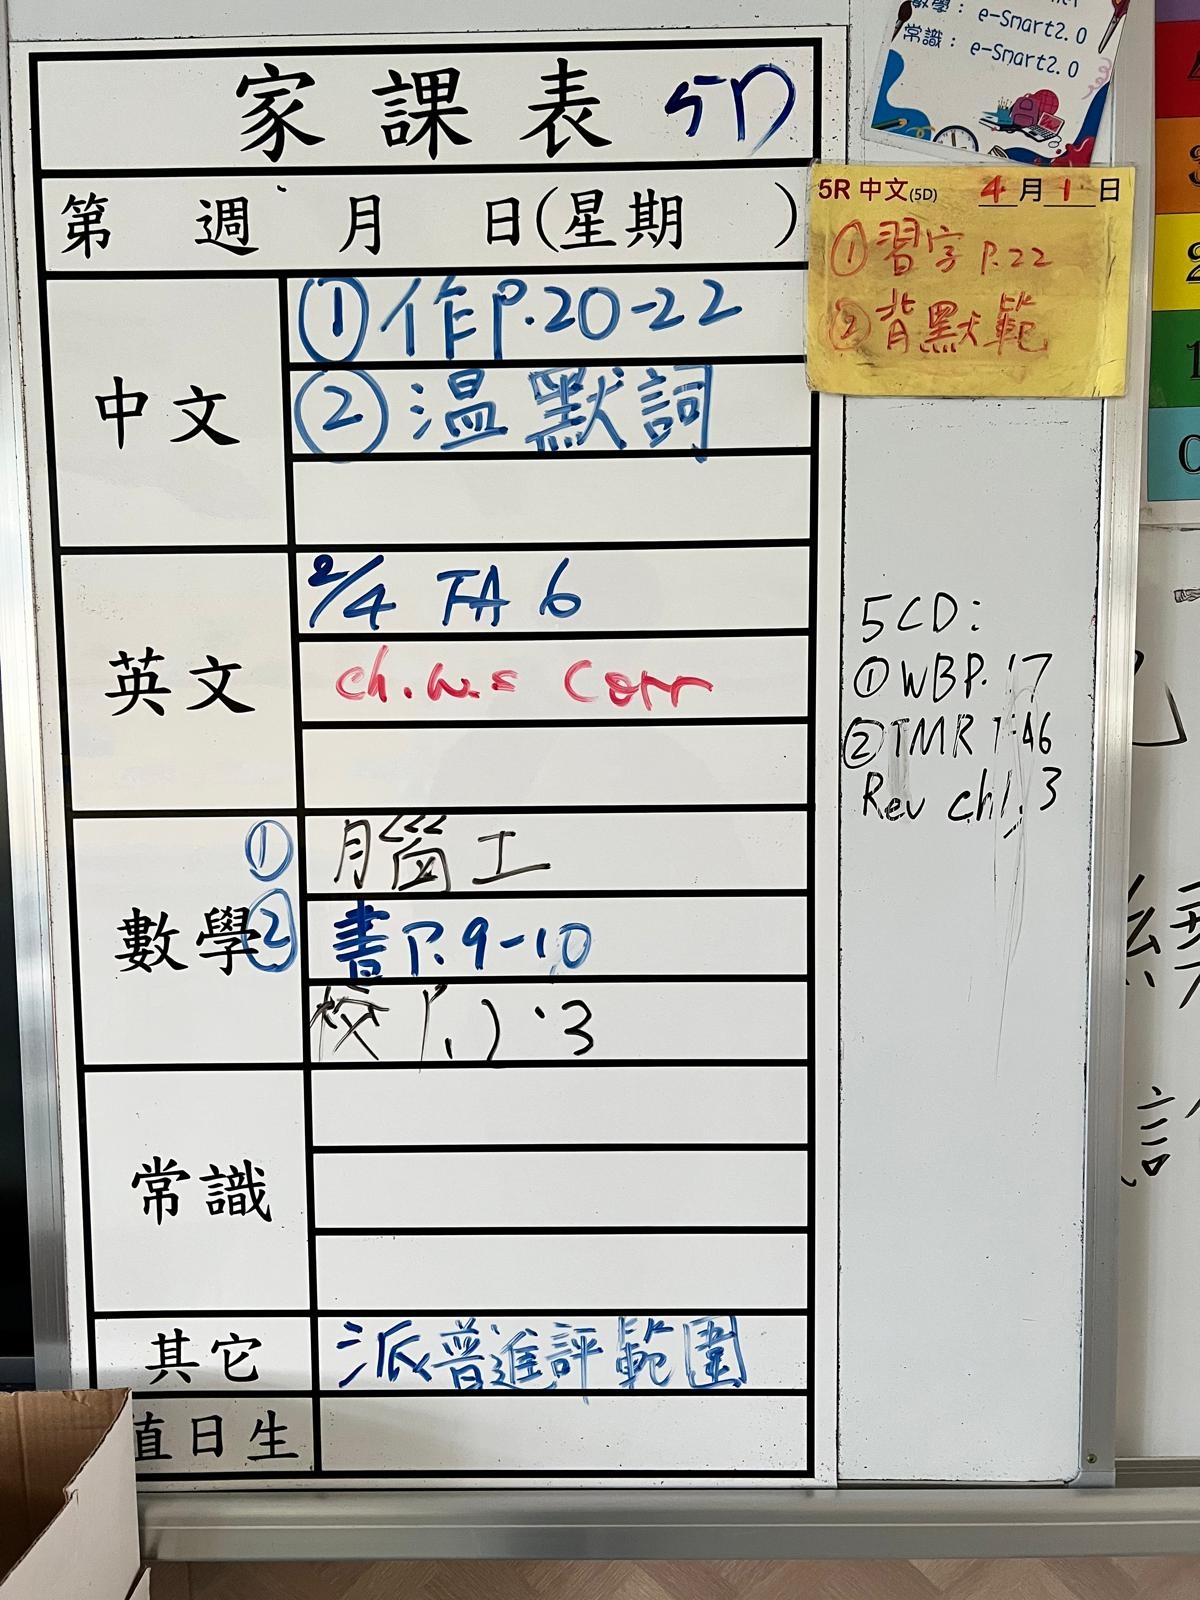 家課表 5D
第 週 月 日(星期 )
中文
①作P.20-22
②溫默詞
英文
2/4 TA 6
ch.w.s Corr
數學
① 腦工
② 書P.9-10
校
3
常識
其它
派普進評範圍
值日生
數學： e-Smart2.0
常識： e-Smart2.0
5R 中文(5D) 4月1日
①習字 P.22
②背默範
5CD:
①WBP. 17
②TMR 1:46
Rev ch1. 3